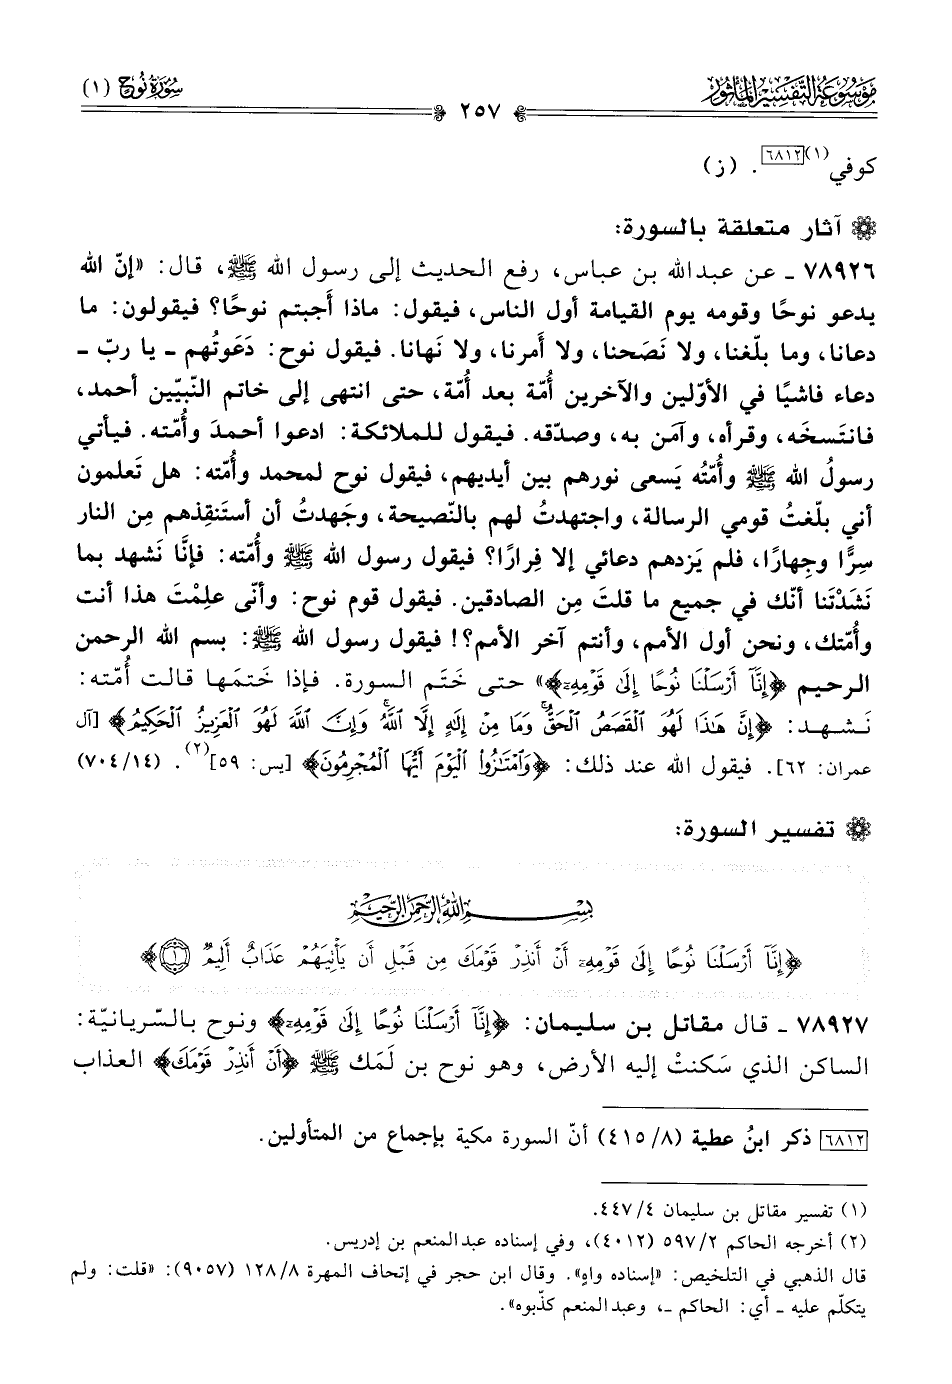 موسوعة التفسير المأثور
٢٥٧
سورة نوح (١)
كوفي(١)[٦٨١٢]. (ز)
آثار متعلقة بالسورة:
٧٨٩٢٦ ـ عن عبدالله بن عباس، رفع الحديث إلى رسول الله ﷺ، قال: «إنّ الله
يدعو نوحًا وقومه يوم القيامة أول الناس، فيقول: ماذا أَجبتم نوحًا؟ فيقولون: ما
دعانا، وما بلّغنا، ولا نَصَحنا، ولا أَمرنا، ولا نَهانا. فيقول نوح: دَعَوتُهم ـ يا ربّ ـ
دعاء فاشيًا في الأوّلين والآخرين أُمّة بعد أُمّة، حتى انتهى إلى خاتم النّبيّين أحمد،
فانتَسخَه، وقرأه، وآمَن به، وصدّقه. فيقول للملائكة: ادعوا أحمدَ وأُمّته. فيأتي
رسولُ الله ﷺ وأُمّتُه يَسعى نورهم بين أيديهم، فيقول نوح لمحمد وأُمّته: هل تَعلمون
أني بلّغتُ قومي الرسالة، واجتهدتُ لهم بالنّصيحة، وجَهدتُ أن أستَنقِذهم مِن النار
سِرًّا وجِهارًا، فلم يَزدهم دعائي إلا فِرارًا؟ فيقول رسول الله ﷺ وأُمّته: فإنَّا نَشهد بما
نَشَدْتَنا أنّك في جميع ما قلتَ مِن الصادقين. فيقول قوم نوح: وأنّى علِمْتَ هذا أنت
وأُمّتك، ونحن أول الأمم، وأنتم آخر الأمم؟! فيقول رسول الله ﷺ: بسم الله الرحمن
الرحيم ﴿إِنَّآ أَرْسَلْنَا نُوحًا إِلَىٰ قَوْمِهِۦٓ﴾» حتى خَتَم السورة. فإذا خَتمَها قالت أُمّته:
نَشهد: ﴿إِنَّ هَٰذَا لَهُوَ ٱلْقَصَصُ ٱلْحَقُّ وَمَا مِنْ إِلَٰهٍ إِلَّا ٱللَّهُ وَإِنَّ ٱللَّهَ لَهُوَ ٱلْعَزِيزُ ٱلْحَكِيمُ﴾ [آل
عمران: ٦٢]. فيقول الله عند ذلك: ﴿وَٱمْتَٰزُوا۟ ٱلْيَوْمَ أَيُّهَا ٱلْمُجْرِمُونَ﴾ [يس: ٥٩](٢). (١٤/ ٧٠٤)
تفسير السورة:
بسم الله الرحمن الرحيم
﴿إِنَّآ أَرْسَلْنَا نُوحًا إِلَىٰ قَوْمِهِۦٓ أَنْ أَنذِرْ قَوْمَكَ مِن قَبْلِ أَن يَأْتِيَهُمْ عَذَابٌ أَلِيمٌ ١﴾
٧٨٩٢٧ ـ قال مقاتل بن سليمان: ﴿إِنَّآ أَرْسَلْنَا نُوحًا إِلَىٰ قَوْمِهِۦٓ﴾ ونوح بالسّريانيّة:
الساكن الذي سَكنتْ إليه الأرض، وهو نوح بن لَمك ﷺ ﴿أَنْ أَنذِرْ قَوْمَكَ﴾ العذاب
[٦٨١٢] ذكر ابنُ عطية (٨/ ٤١٥) أنّ السورة مكية بإجماع من المتأولين.
(١) تفسير مقاتل بن سليمان ٤/ ٤٤٧.
(٢) أخرجه الحاكم ٢/ ٥٩٧ (٤٠١٢)، وفي إسناده عبدالمنعم بن إدريس.
قال الذهبي في التلخيص: «إسناده واهٍ». وقال ابن حجر في إتحاف المهرة ٨/ ١٢٨ (٩٠٥٧): «قلت: ولم
يتكلّم عليه ـ أي: الحاكم ـ، وعبدالمنعم كذّبوه».